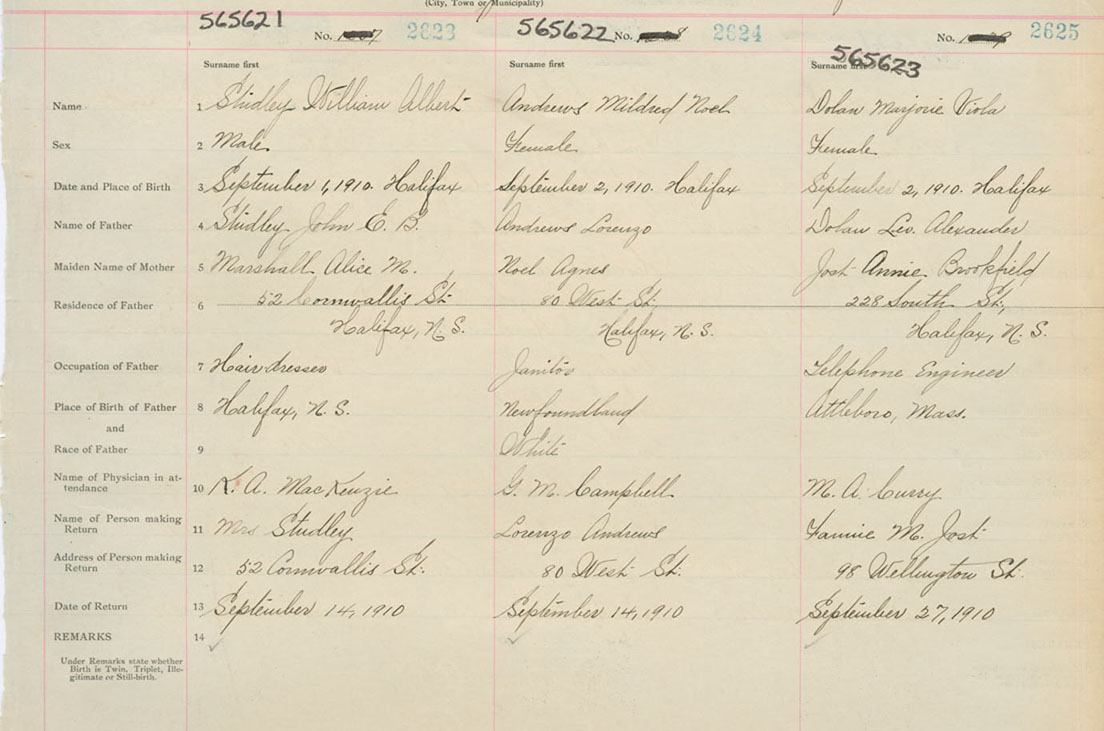 (City, Town or Municipality)
565621 No. 2623 565622 No. 2624 No. 2625
565623
Surname first Surname first Surname first
Name 1 Studley William Albert Andrews Mildred Noel Dolan Marjorie Viola
Sex 2 Male Female Female
Date and Place of Birth 3 September 1, 1910. Halifax September 2, 1910. Halifax September 2, 1910. Halifax
Name of Father 4 Studley John E. B. Andrews Lorenzo Dolan Leo. Alexander
Maiden Name of Mother 5 Marshall Alice M. Noel Agnes Jost Annie Brookfield
Residence of Father 6 52 Cornwallis St. 80 West St. 228 South St.,
Halifax, N. S. Halifax, N. S. Halifax, N. S.
Occupation of Father 7 Hairdresser Janitor Telephone Engineer
Place of Birth of Father 8 Halifax, N. S. Newfoundland Attleboro, Mass.
and
Race of Father 9 White
Name of Physician in at-
tendance 10 K. A. MacKenzie G. M. Campbell M. A. Curry
Name of Person making
Return 11 Mrs Studley Lorenzo Andrews Fannie M. Jost
Address of Person making
Return 12 52 Cornwallis St. 80 West St. 98 Wellington St.
Date of Return 13 September 14, 1910 September 14, 1910 September 27, 1910
REMARKS 14
Under Remarks state whether
Birth is Twin, Triplet, Ille-
gitimate or Still-birth.